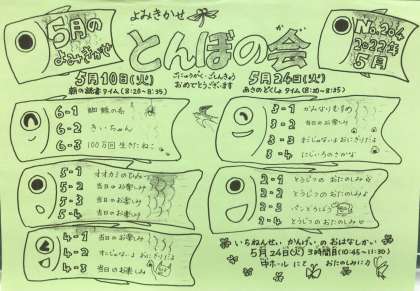 5月の
よみきかせ
よみきかせ
とんぼの会
No.204
2022年
5月
5月10日(火)
朝の読書タイム(8:20~8:35)
ごにゅうがく・ごしんきゅう
おめでとうございます
5月24日(火)
あさのどくしょタイム(8:20~8:35)
6-1 蜘蛛の糸
6-2 きいちゃん
6-3 100万回生きたねこ
5-1 オオカミのひみつ
5-2 当日のお楽しみ
5-3 当日のお楽しみ
5-4 当日のお楽しみ
4-1 当日のお楽しみ
4-2
4-3 当日のお楽しみ
3-1 かみなりむすめ
3-2 当日のお楽しみ
3-3
3-4 にじいろのさかな
2-1 とうじつのおたのしみ
2-2 とうじつのおたのしみ
2-3 パンどうぞ
2-4 とうじつのおたのしみ
いちねんせい かんげい の おはなしかい
5月24日(火) 3時間目(10:45~11:30)
中ホール にて おたのしみに♪